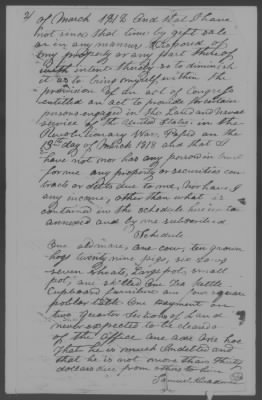 of March 1818 and that I have
not since that time by gift sale
or in any manner disposed of
my property or any part thereof
with intent thereby so to diminish
it as to bring myself within the
provision of an act of Congress
entitled an act to provide for certain
persons engaged in the land and naval
service of the United States in the
Revolutionary War, passed on the
18th day of March 1818 and that I
have not nor has any person in trust
for me any property or securities con
tracts or debts due to me, nor have I
any income, other than what is
contained in the schedule hereunto
annexed and by me subscribed
Schedule
One old mare, one cow, ten grown
hogs twenty nine pigs, six
seven shoats, large pot, small
pot, one one Tea Kettle
Cupboard furniture one
One payment on
two quarter sections of land
never expected to be cleared
of the office one axe one hoe
that he is much indebted and
that he is not more than thirty
dollars due from others to him
Samuel